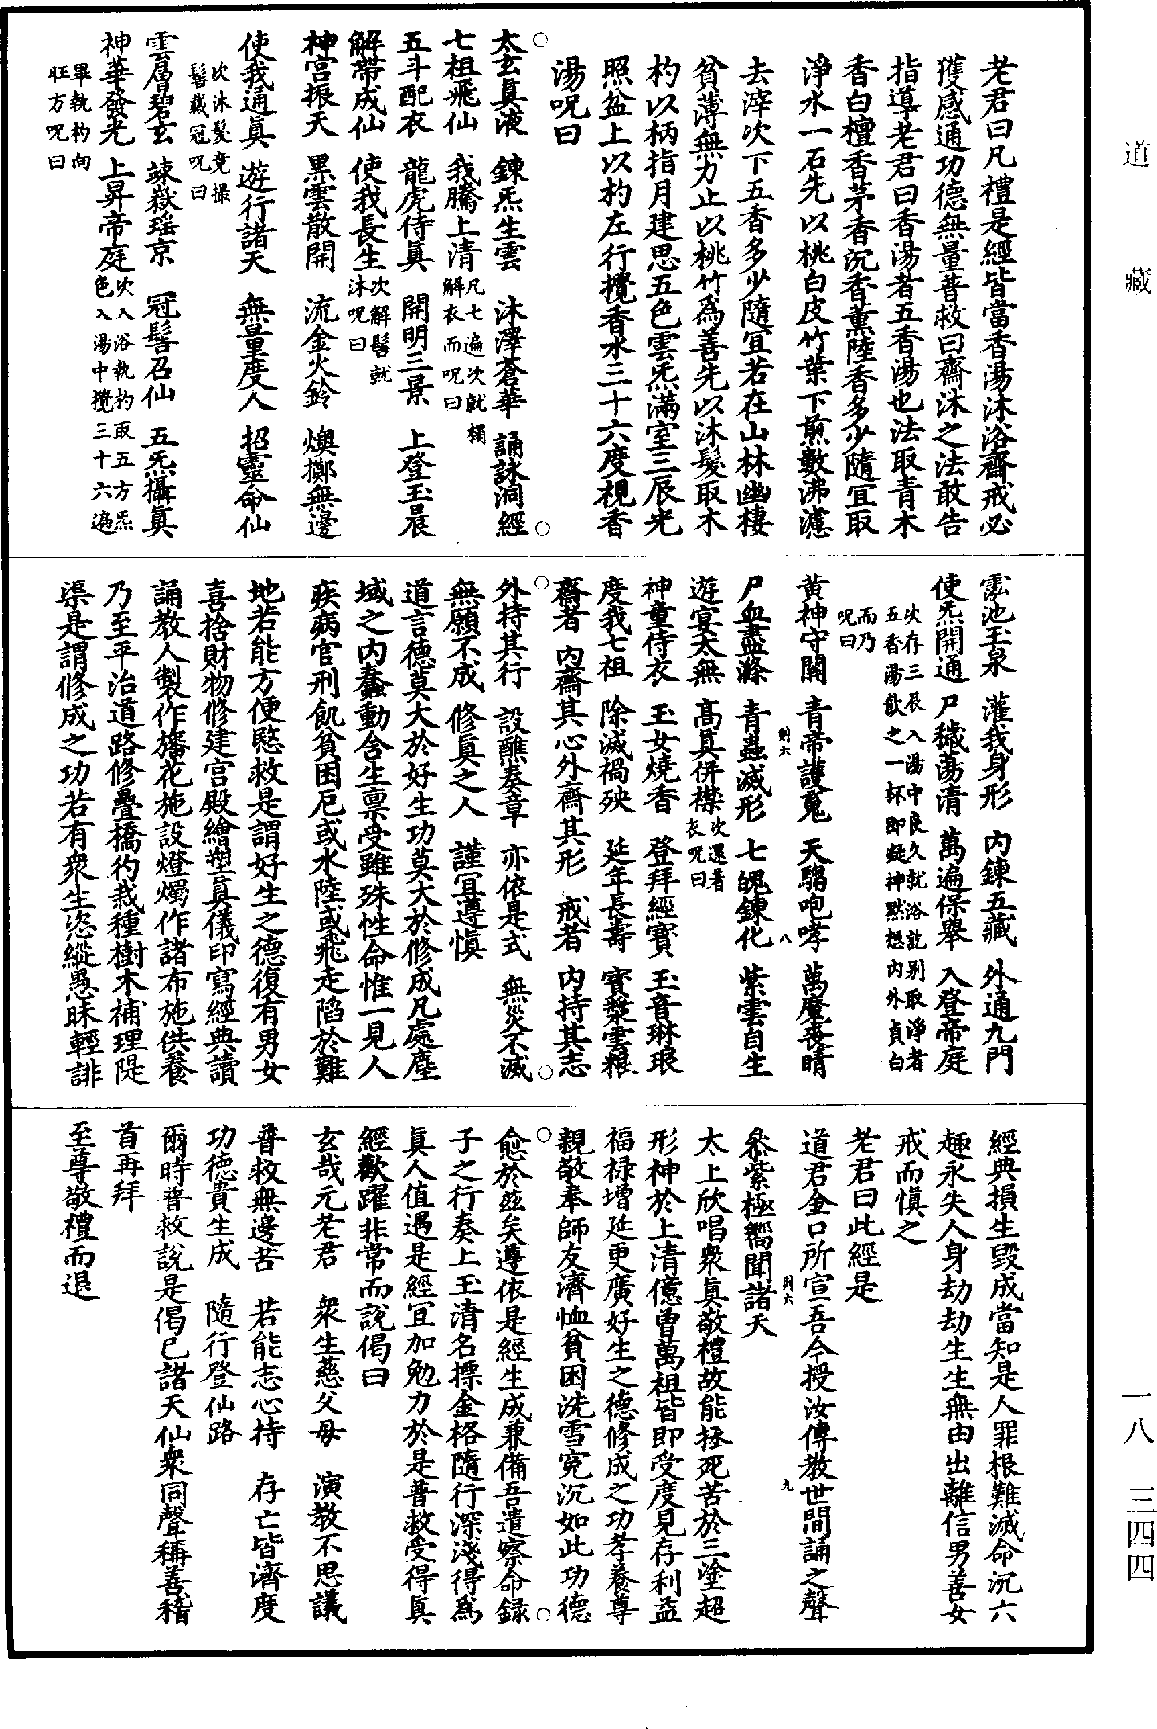 道藏
一八 三四四
老君曰凡禮是經皆當香湯沐浴齋戒必
獲感通功德無量普救曰齋沐之法敢告
指導老君曰香湯者五香湯也法取青木
香白檀香茅香沉香薰陸香多少隨宜取
淨水一石先以桃白皮竹葉下煎數沸濾
去滓次下五香多少隨宜若在山林幽棲
貧薄無力止以桃竹為善先以沐髮取木
杓以柄指月建思五色雲炁滿室三辰光
照盆上以杓左行攪香水三十六度視香
湯呪曰
太玄真液 鍊炁生雲 沐澤蒼華 誦詠洞經
七祖飛仙 我騰上清凡七遍次就櫚解衣而呪曰
五斗配衣 龍虎侍真 開明三景 上登玉晨
解帶成仙 使我長生次解髻就沐呪曰
神宮振天 黑雲散開 流金火鈴 煥擲無邊
使我通真 遊行諸天 無量度人 招靈命仙
次沐髮竟撮髻戴冠呪曰
雲層碧玄 竦嶽瑶京 冠髻召仙 五炁攝真
神華發光 上昇帝庭次入浴執杓取五方炁色入湯中攪三十六遍
畢執杓向旺方呪曰
霐池玉泉 灌我身形 內鍊五藏 外通九門
使炁開通 尸穢蕩清 萬遍保舉 入登帝庭
次存三辰入湯中良久就浴訖別取淨者
五香湯飲之一杯即凝神默想內外貞白
而乃呪曰
黃神守關 青帝護䰟 天騶咆哮 萬魔喪睛
尸血盡滌 青蟲滅形 七魄鍊化 紫雲自生
遊宴太無 高真併襟次還著衣呪曰
神童侍衣 玉女燒香 登拜經寶 玉音琳琅
度我七祖 除滅禍殃 延年長壽 寶槳雲粮
齋者內齋其心外齋其形 戒者內持其志
外持其行 設醮奏章 亦依是式 無災不滅
無願不成 修真之人 謹宜遵慎
道言德莫大於好生功莫大於修成凡處塵
域之內蠢動含生禀受雖殊性命惟一見人
疾病官刑飢貧困厄或水陸或飛走陷於難
地若能方便愍救是謂好生之德復有男女
喜捨財物修建宮殿繪塑真儀印寫經典讀
誦教人製作旛花施設燈燭作諸布施供養
乃至平治道路修疊橋彴栽種樹木補理隄
渠是謂修成之功若有衆生恣縱愚昧輕誹
經典損生毀成當知是人罪根難滅命沉六
趣永失人身劫劫生生無由出離信男善女
戒而慎之
老君曰此經是
道君金口所宣吾今授汝傳教世間誦之聲
叅紫極嚮聞諸天
太上欣唱衆真敬禮故能拯死苦於三塗超
形神於上清億曾萬祖皆即受度見存利益
福禄增延更廣好生之德修成之功孝養尊
親敬奉師友濟恤貧困洗雪寃沉如此功德
愈於兹矣遵依是經生成兼備吾遣察命録
子之行奏上玉清名標金格隨行深淺得為
真人值遇是經宜加勉力於是普救受得真
經歡躍非常而說偈曰
玄哉元老君 衆生慈父母 演教不思議
普救無邊苦 若能志心持 存亡皆濟度
功德貴生成 隨行登仙路
爾時普救說是偈已諸天仙衆同聲稱善稽
首再拜
至尊敬禮而退